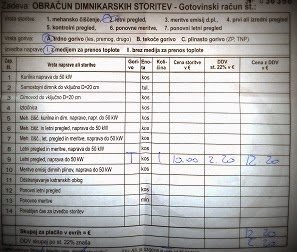 Zadeva: OBRAČUN DIMNIKARSKIH STORITEV - Gotovinski račun št.
Vrsta storitev: 1. mehansko čiščenje, 2. letni pregled, 3. meritve emisij d.pl., 4. prvi ali izredni pregled
5. kontrolni pregled, 6. ponovne meritve, 7. ponovni letni pregled
Vrsta goriva: A. trdno gorivo (les, premog, drogo) B. tekoče gorivo C. plinasto gorivo (ZP, TNP)
Izvedba naprave: I. z medijem za prenos toplote I. brez medija za prenos toplote
Vrsta naprave ali storitve Gorivo Enota Količina Cena storitve v € DDV st. 22% v € Cena z DDV v €
1 Kurilna naprava do 50 kW kos
2 Samostojni dimnik do vključno D=20 cm
3 Dimovod do vključno D=20 cm kos
4 Izločnica kos
5 Meh. čišč. kurilnih in dim. naprave, napr. do 50 kW kos
6 Meh. čišč. in let. pregled, naprava do 50 kW kos
7 Meh. čišč., let. pregled in meritve, naprava do 50 kW kos
8 Letni pregled in meritve, naprava do 50 kW kos
9 Letni pregled, naprava do 50 kW T kos 1 10.00 2.20 12.20
10 Meritve emisij dimnih plinov, naprava do 50 kW kos
11 Odstranjevanje katranskih oblog
12 Ponovni letni pregled kos
13 Ponovne meritve
14 Posebni čas za izvedbo storitev
Skupaj za plačilo v evrih = € 12.20
DDV skupaj po st. 22% znaša 2.20